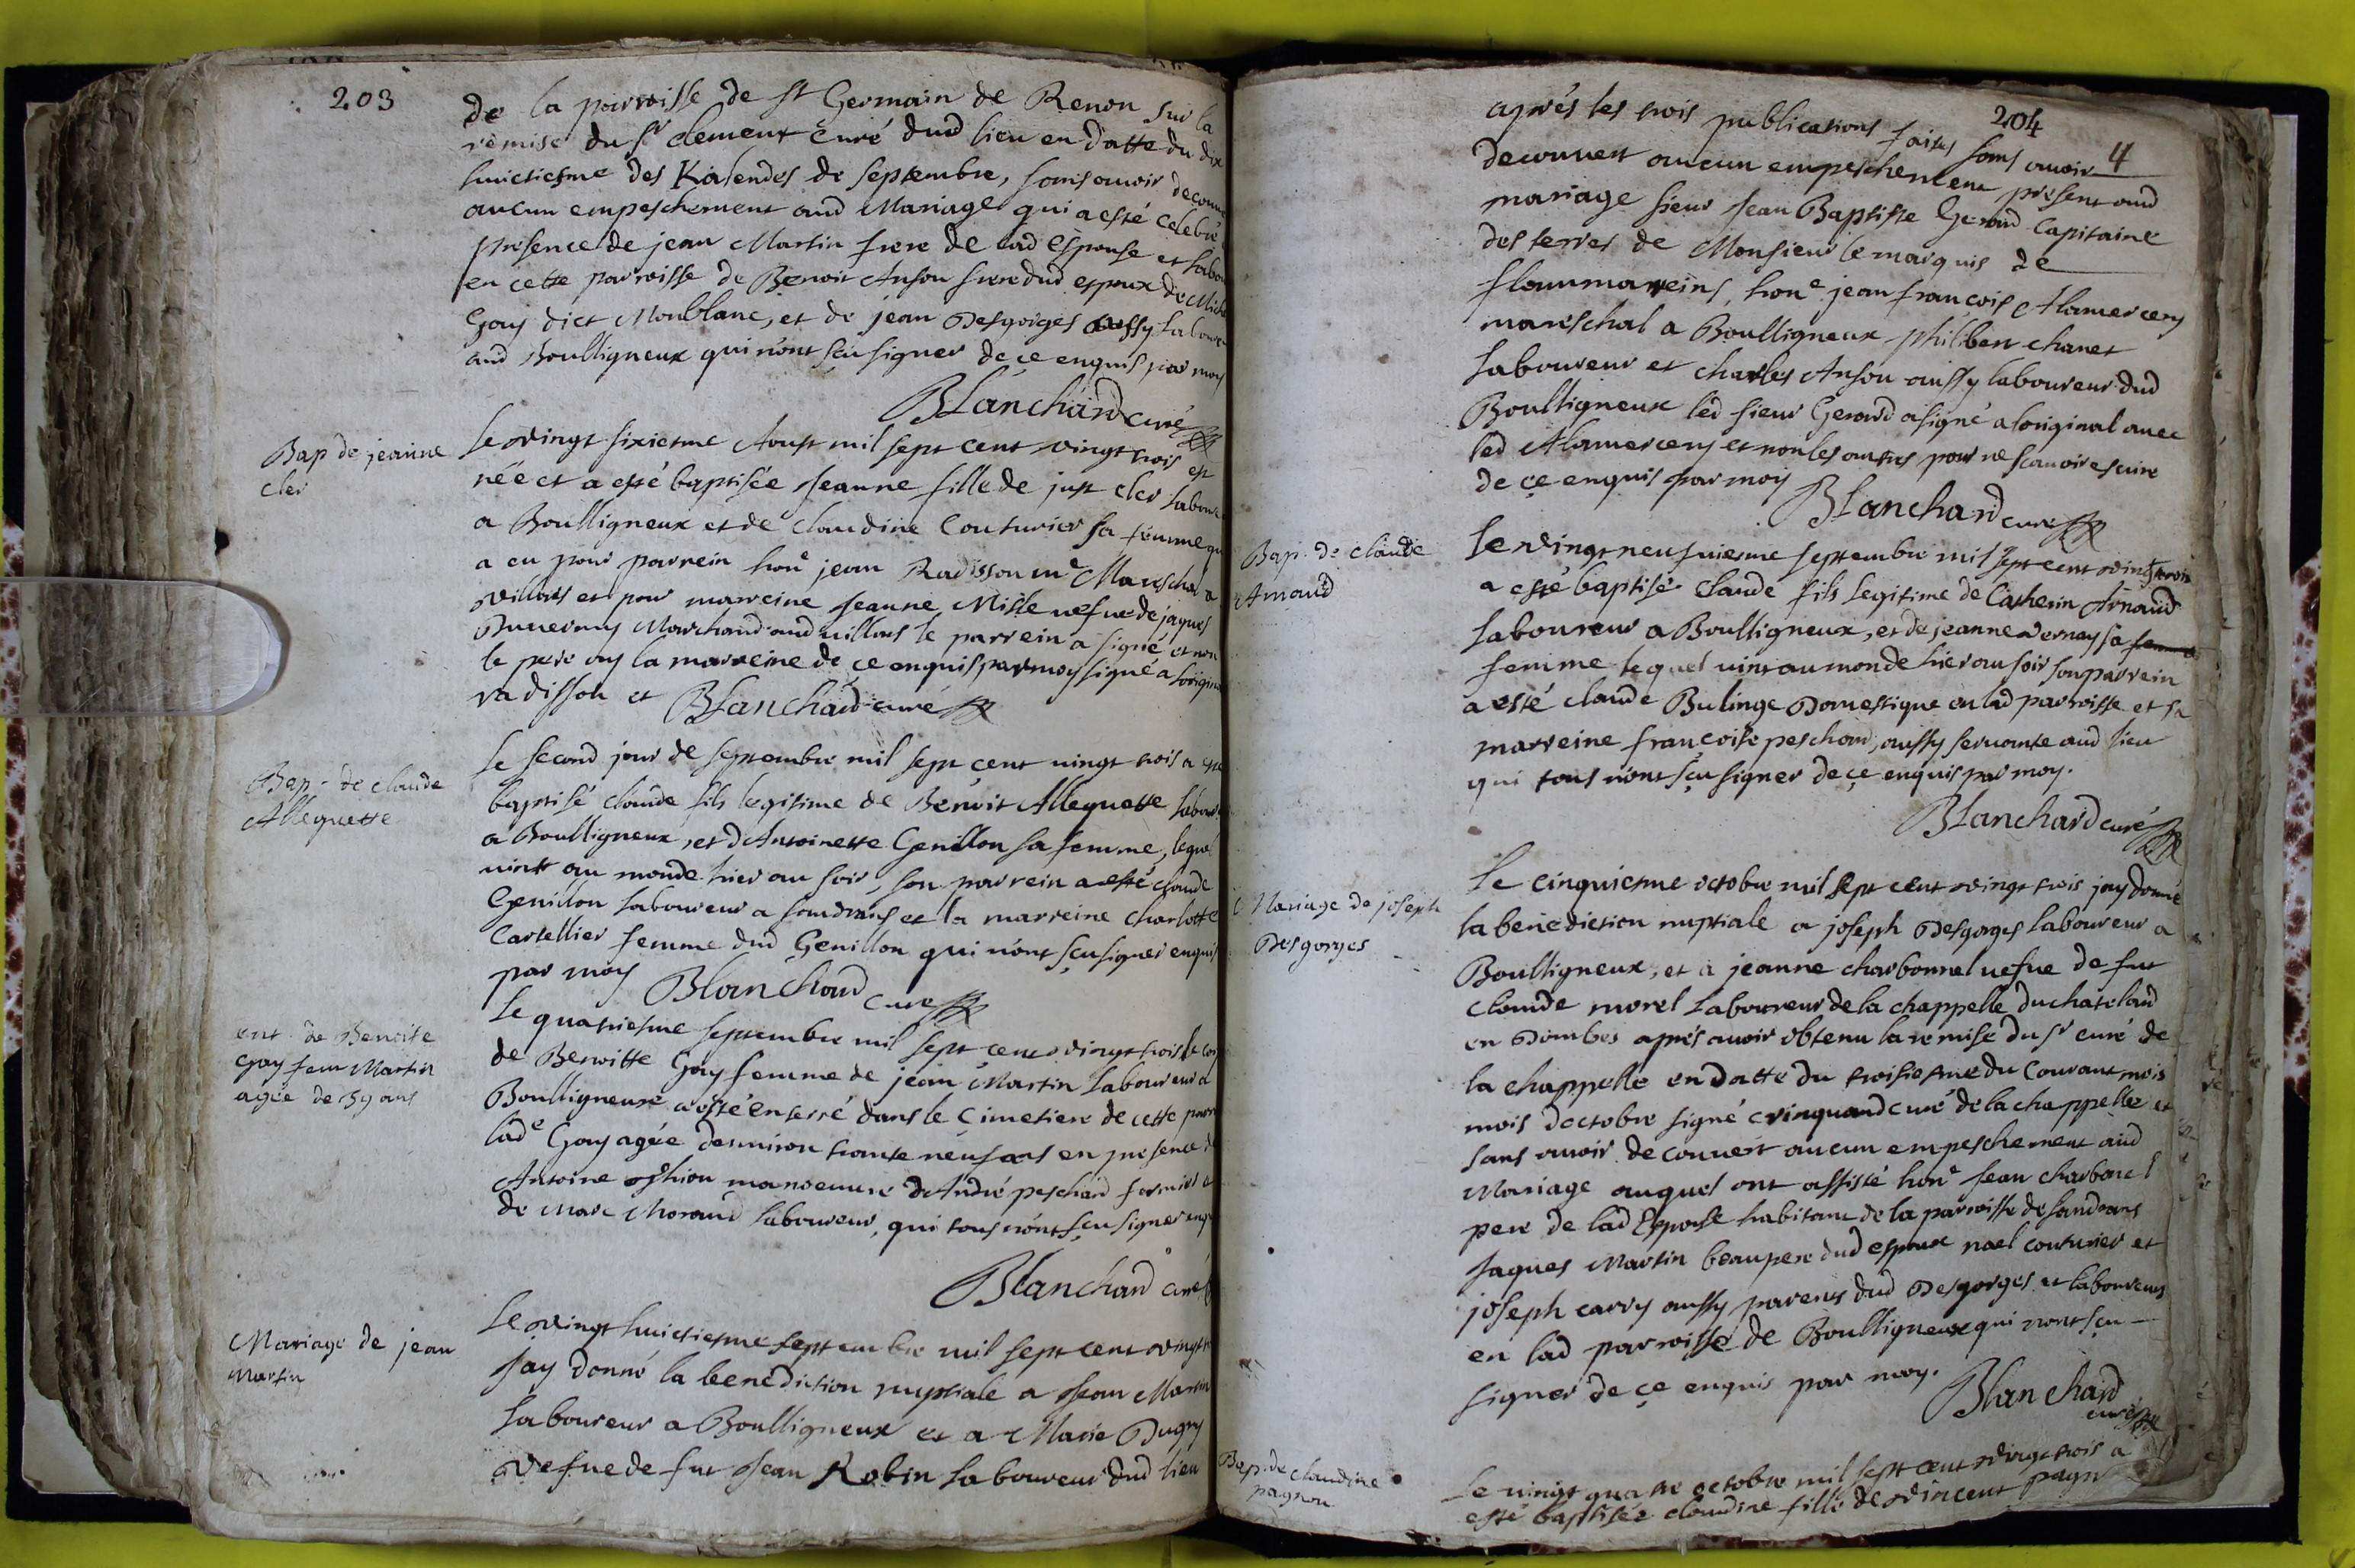 203
de la parroisse de st Germain de Renon sur la
remise du sr clement curé dud lieu en datte du dix
huictiesme des Kalendes de septembre, sans auoir decouu
aucun empeschement aud Mariage qui a esté celebré
presence de jean Martin frere de lad Espouse et labou
en cette parroisse de Benoit Anson frere dud espoux de Mich
Gay dict Monblanc, et de jean Desgorges aussy labour
aud Boulligneux qui n'ont sçu signer de çe enquis par moy
Blanchard curé
Bap de jeanne
cler
le vingt sixiesme Aoust mil sept cent vingt trois est
née et a esté baptisée Jeanne fille de just cler labour
a Boulligneux et de claudine Couturier sa femme qu
a eu pour parrein hone jean Radisson me Mareschal a
villars et pour marreine Jeanne Mille uefue de jaques
Buuernay Marchand aud uillars le parrein a signé et non
le pere ny la marreine de çe enquis par moy signé a loriginal
radisson et Blanchard curé
Bap. de claude
Allequette
le second jour de septembre mil sept cent uingt trois a esté
baptisé claude fils legitime de Benoit Allequette labour
a Boulligneux, et d'Antoinette Genillon sa femme, lequel
uint au monde hier au soir, son parrein a esté claude
Genillon laboureur a sandrans et la marreine charlotte
Cartellier femme dud Genillon qui n'ont sçu signer enquis
par moy Blanchard curé
ent. de Benoite
gay fem Martin
agée de 39 ans
le quatriesme septembre mil sept cent vingt trois le cor
de Benoitte Gay femme de jean Martin laboureur a
Boulligneux a esté enterré dans le Cimetiere de cette parr
lade Gay agée denuiron trante neuf ans en presence d
Antoine manoeuure d'André peschard fermier e
de Marc Morand laboureur, qui tous n'ont sçu signer enq
Blanchard curé
Mariage de jean
Martin
Le vingt huictiesme septembre mil sept cent vingt
Jay donné la benediction nuptiale a Jean Martin
laboureur a Boulligneux et a Marie Dugny
vefue de fut Jean Robin laboureur dud lieu
204
4
aprés les trois publications faites sans auoir
decouuert aucun empeschement present aud
mariage sieur Jean Baptiste Gerard Capitaine
des terres de Monsieur le marquis de
flammareins, hone jean françois Alamercery
mareschal a Boulligneux philibert chanet
laboureur et charles Anson aussy laboureur dud
Boulligneux led sieur Gerard a signé a loriginal auec
led Alamercery et non les autres pour ne scauoir escrire
de çe enquis par moy
Blanchard curé
Bap. de claude
Arnaud
le vingt neufuiesme septembre mil sept cent vingt trois
a esté baptisé Claude fils legitime de Catherin Arnaud
laboureur a Boulligneux, et de jeanne vernay sa femme
femme lequel uint au monde hier au soir son parrein
a esté claude Bulinge Domestique en lad parroisse et sa
marreine françoise peschard, aussy seruante aud lieu
qui tous n'ont sçu signer de çe enquis par moy.
Blanchard curé
Mariage de joseph
Desgorges
Le cinquiesme octobre mil sept cent vingt trois jay donné
la benediction nuptiale a joseph Desgorges laboureur a
Boulligneux, et a jeanne charbonnel uefue de fut
claude morel laboureur de la chappelle du chateland
en Dombes aprés auoir obtenu la remise du sr curé de
la chappelle en datte du troisiesme du Courant mois
mois doctobre signé cvinquand curé de la chappelle et
sans auoir decouuert aucun empeschement aud
Mariage auquel ont assisté hone Jean charbonel
pere de lad Espouse habitant de la parroisse de sandrans
Jaques Martin beaupere dud espoux noel couturier et
joseph carry aussy parents dud Desgorges et laboureurs
en lad parroisse de Boulligneux qui n'ont sçu
signer de çe enquis par moy.
Blanchard
curé
Bap. de claudine
pagnon
Le uingt quatre octobre mil sept cent vingt trois a
esté baptisée claudine fille de vincent pagn